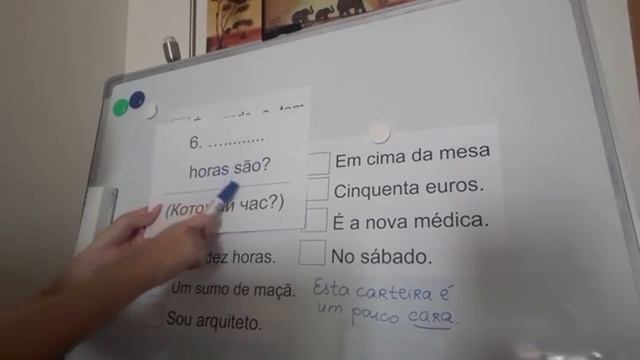 6. ............
horas são?
(Который час?)
Em cima da mesa
Cinquenta euros.
É a nova médica.
No sábado.
dez horas.
Um sumo de maçã.
Sou arquiteto.
Esta carteira é
um pouco cara.